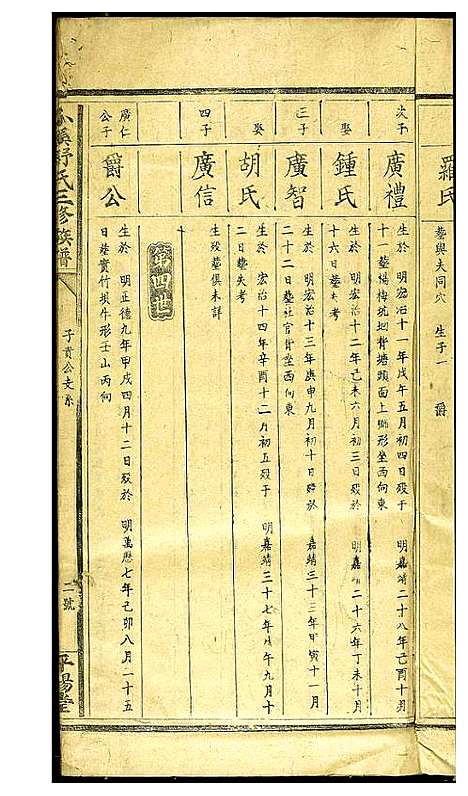 羅氏
葬與夫同穴 生子一 爵
次子
廣禮
生於 明宏治十一年戊午五月初四日歿于 明嘉靖二十八年己酉十月
十一葬楊梅坑坳背塘頭面上獅形坐西向東
娶
鍾氏
生於 明宏治十二年己未六月初三日歿於 明嘉靖二十六年丁未十月
十六日葬失考
三子
廣智
生於 明宏治十三年庚申九月初十日歿於 嘉靖三十三年甲寅十一月
二十二日葬社官背坐西向東
娶
胡氏
生於 宏治十四年辛酉十二月初五歿于 明嘉靖三十七年戊午九月十
二日葬失考
四子
廣信
生歿葬俱未詳
第四世
廣仁
公子
爵公
生於 明正德九年甲戌四月十二日歿於 明萬歷七年己卯八月二十五
日葬賣竹垻牛形壬山丙向
溪舒氏三修族譜
子貴公支系
二號
平陽堂